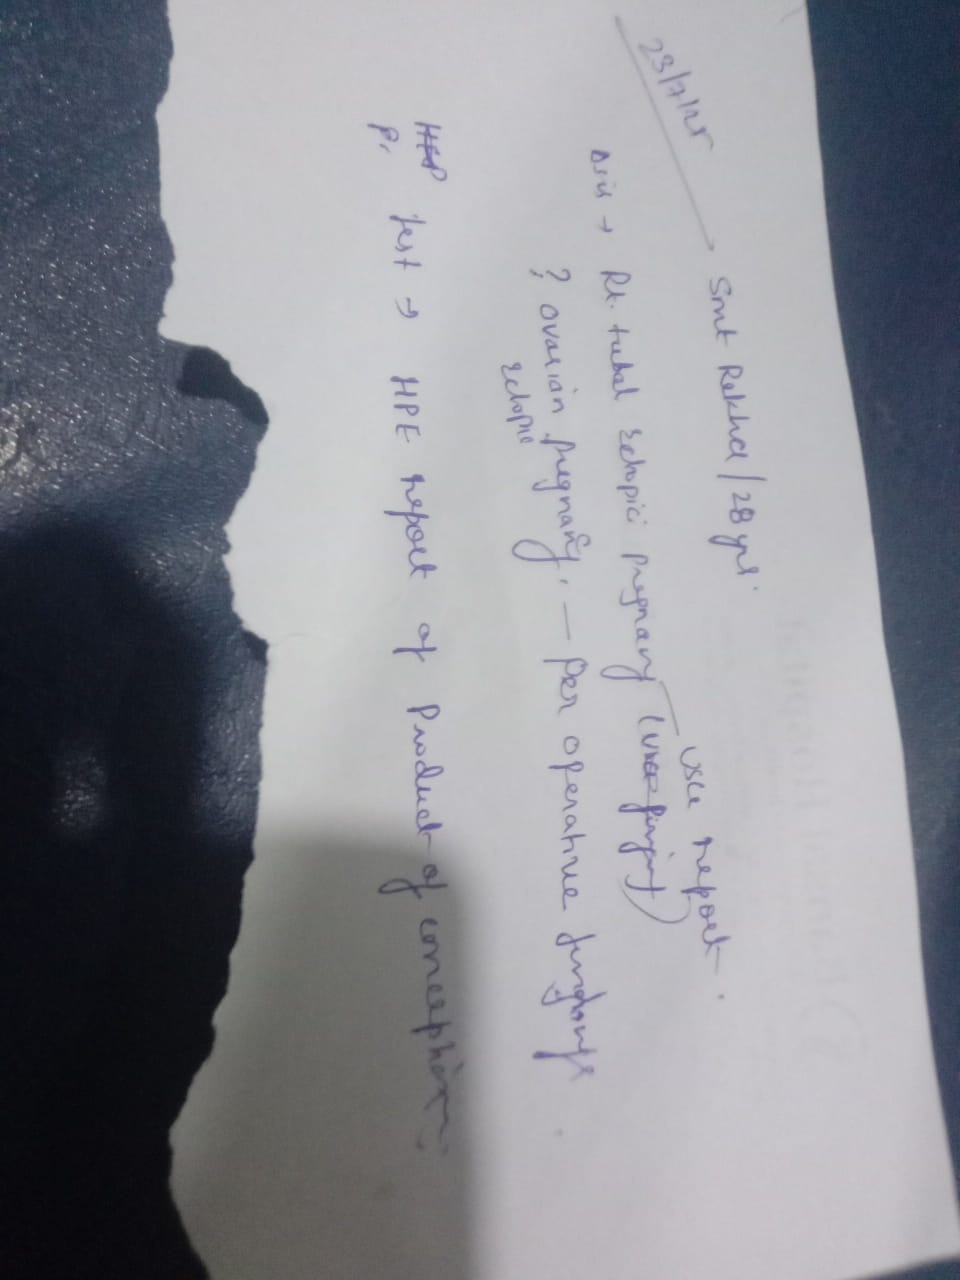 23/7/25
Smt Rekha / 28 yrs.
USG report.
Δsis → Rt. tubal Ectopic pregnancy
? ovarian pregnancy. — Per operative findings
Ectopic
Pr. Test → HPE report of Product of conception.